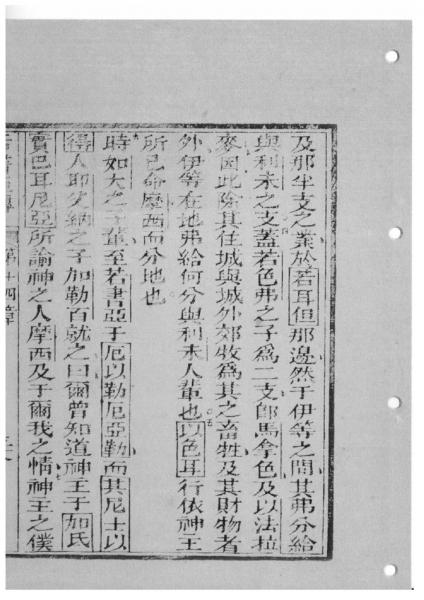 及那半支之業於若耳但那邊然于伊等之間其弗分給
與利未之支蓋若色弗之子為二支郎馬拿色及以法拉
麥因此除其住城與城外郊牧為其之畜牲及其財物者
外伊等在地弗給何分與利未人輩也以色耳行依神主
所已命摩西而分地也
時如大之子輩至若書亞于厄以勒厄亞勒而其尼士以
得人耶孚納之子加勒百就之曰爾曾知道神主于加氏
實巴耳尼亞所諭神之人摩西及于爾我之情神主之僕
第十四章